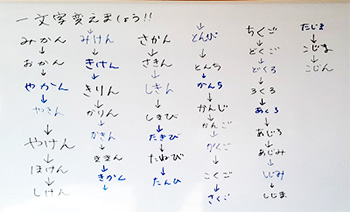 一文字変えましょう!!
みかん
↓
おかん
↓
やかん
↓
やさん
↓
やけん
↓
ほけん
↓
しけん
みけん
↓
きけん
↓
きりん
↓
かりん
↓
かきん
↓
ききん
↓
きかん
↓
さかん
↓
さきん
↓
しきん
↓
しきび
↓
たきび
↓
たねび
↓
たんび
↓
とんび
↓
とんち
↓
かんち
↓
かんじ
↓
かんご
↓
かくご
↓
こくご
↓
さくご
↓
ちくご
↓
どくご
↓
どくろ
↓
ろくろ
↓
あくろ
↓
あじろ
↓
あじみ
↓
しじみ
↓
しじま
↓
たじま
↓
こじま
↓
こじん